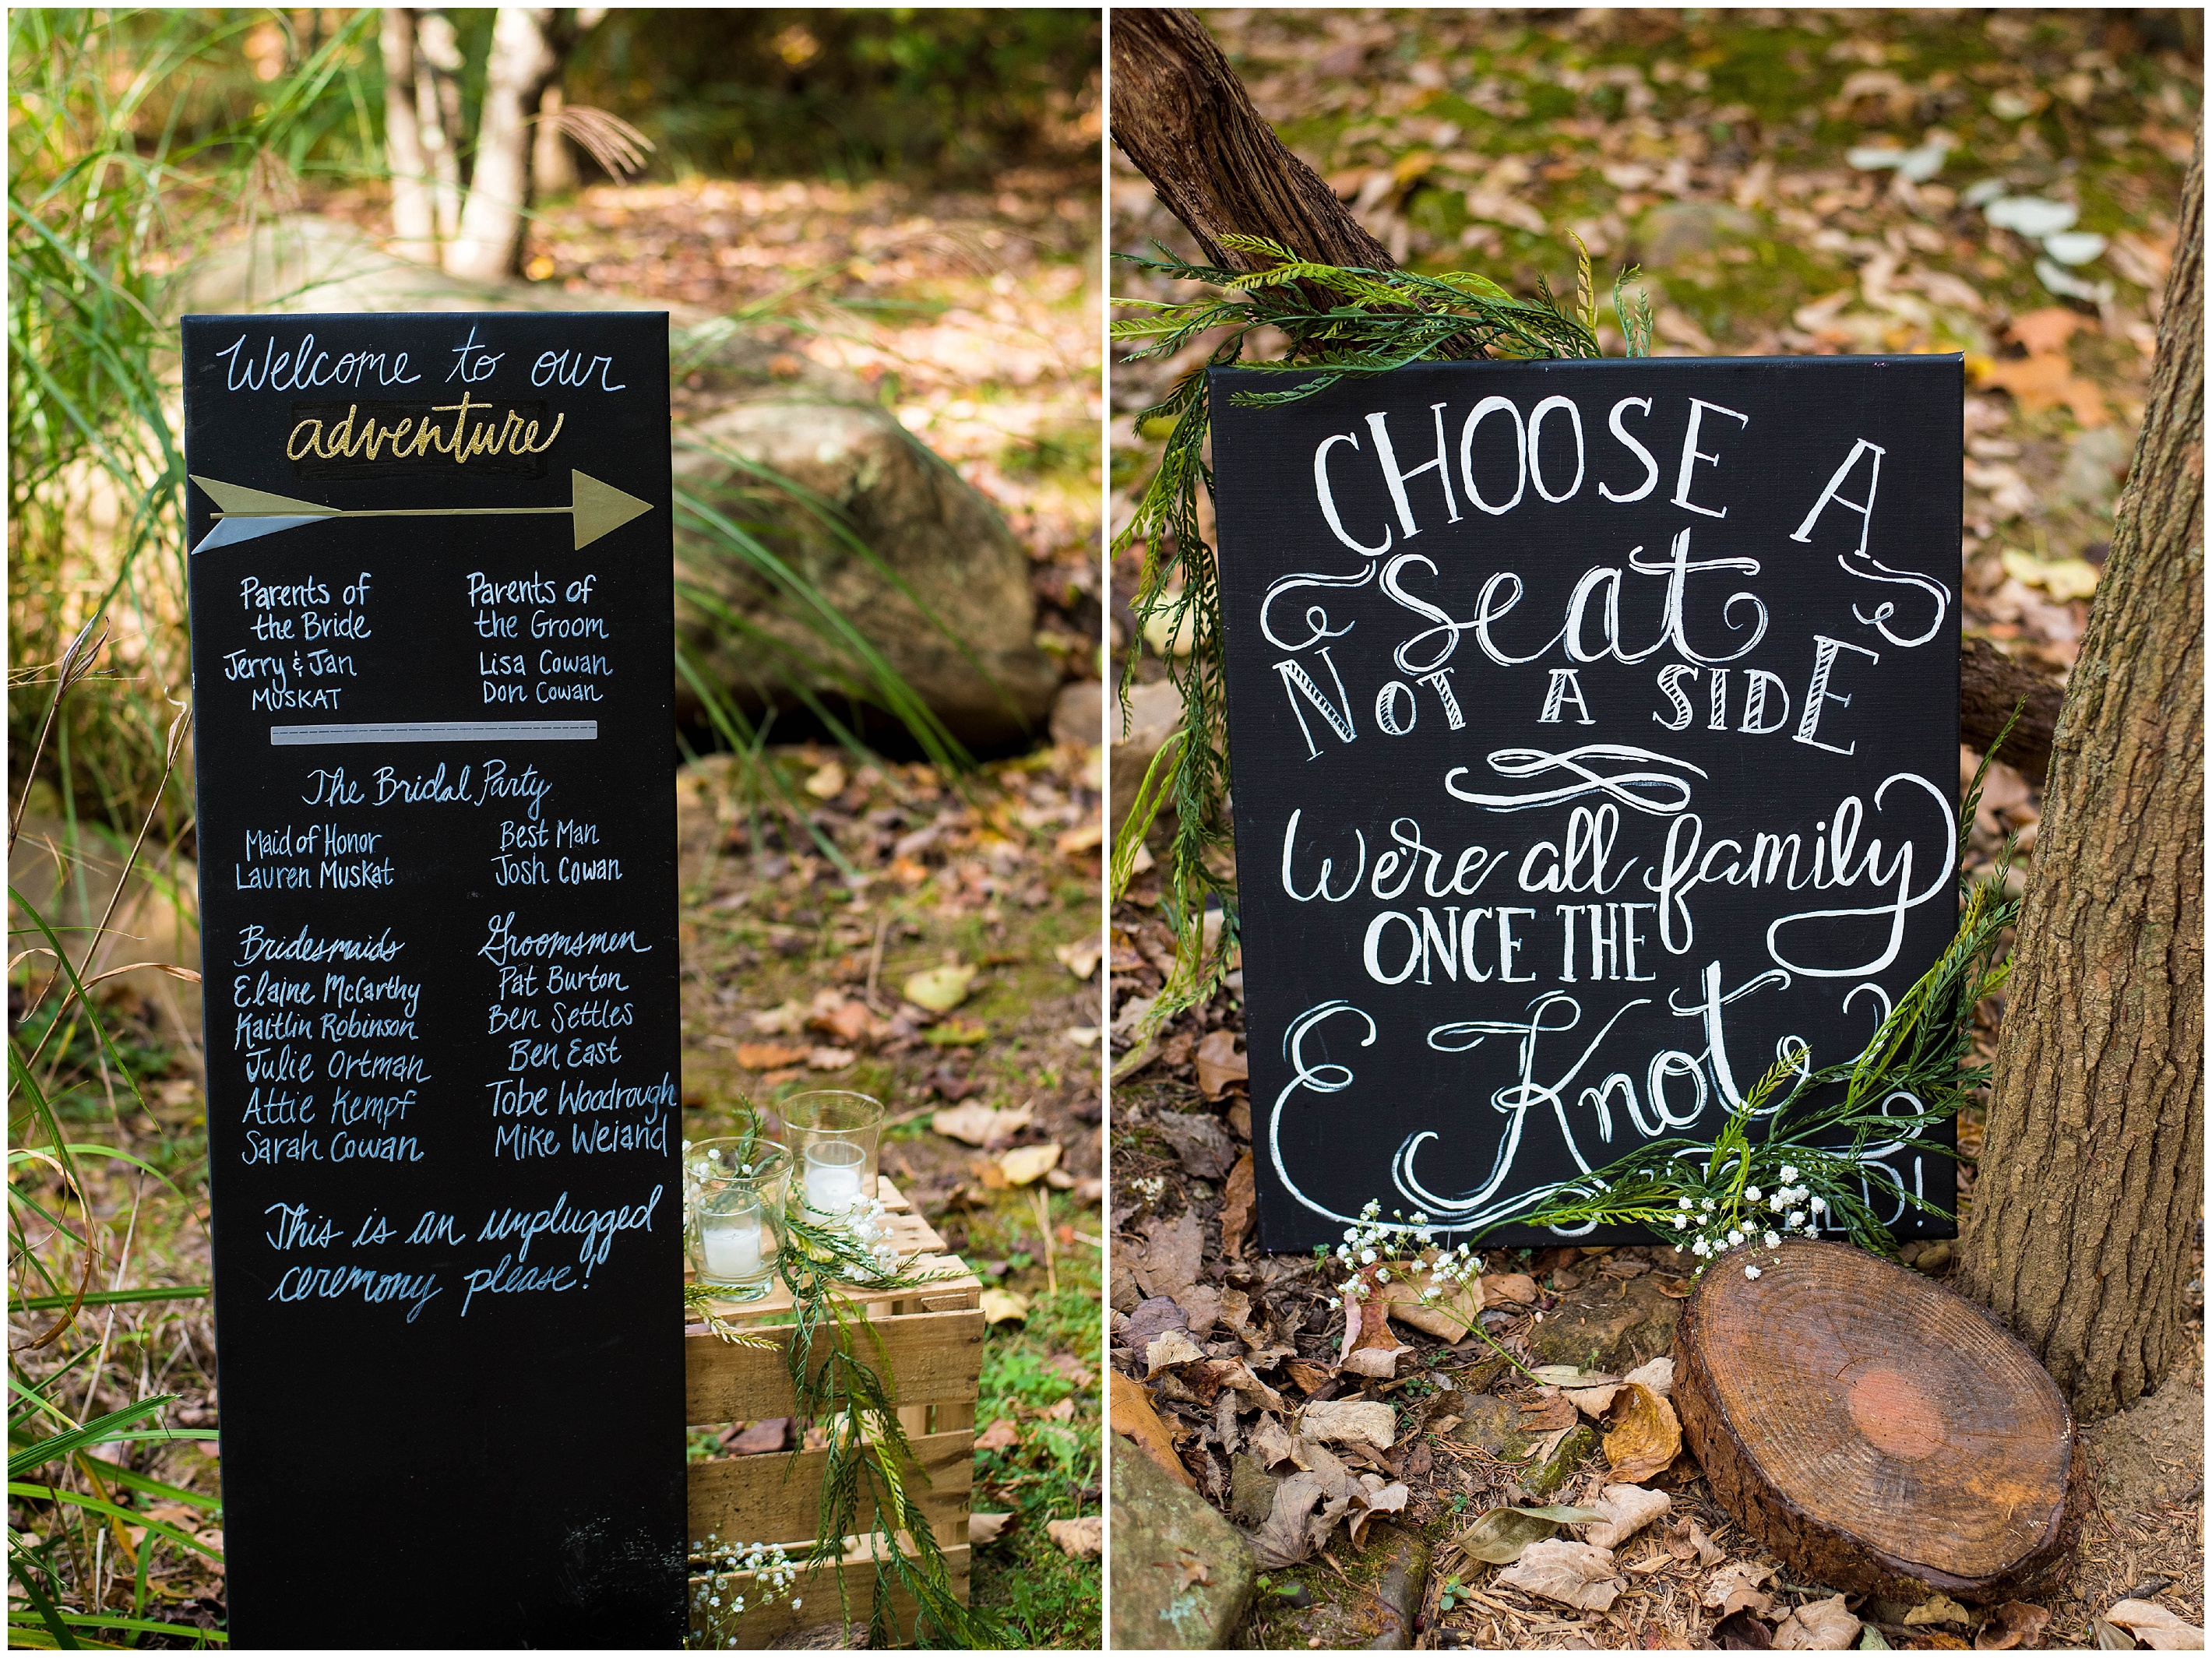 Welcome to our
adventure
Parents of
the Bride
Jerry & Jan
MUSKAT
Parents of
the Groom
Lisa Cowan
Don Cowan
The Bridal Party
Maid of Honor
Lauren Muskat
Best Man
Josh Cowan
Bridesmaids
Elaine McCarthy
Kaitlin Robinson
Julie Ortman
Attie Kempf
Sarah Cowan
Groomsmen
Pat Burton
Ben Settles
Ben East
Tobe Woodrough
Mike Weiand
This is an unplugged
ceremony please!
CHOOSE A
Seat
NOT A SIDE
We're all family
ONCE THE
Knot